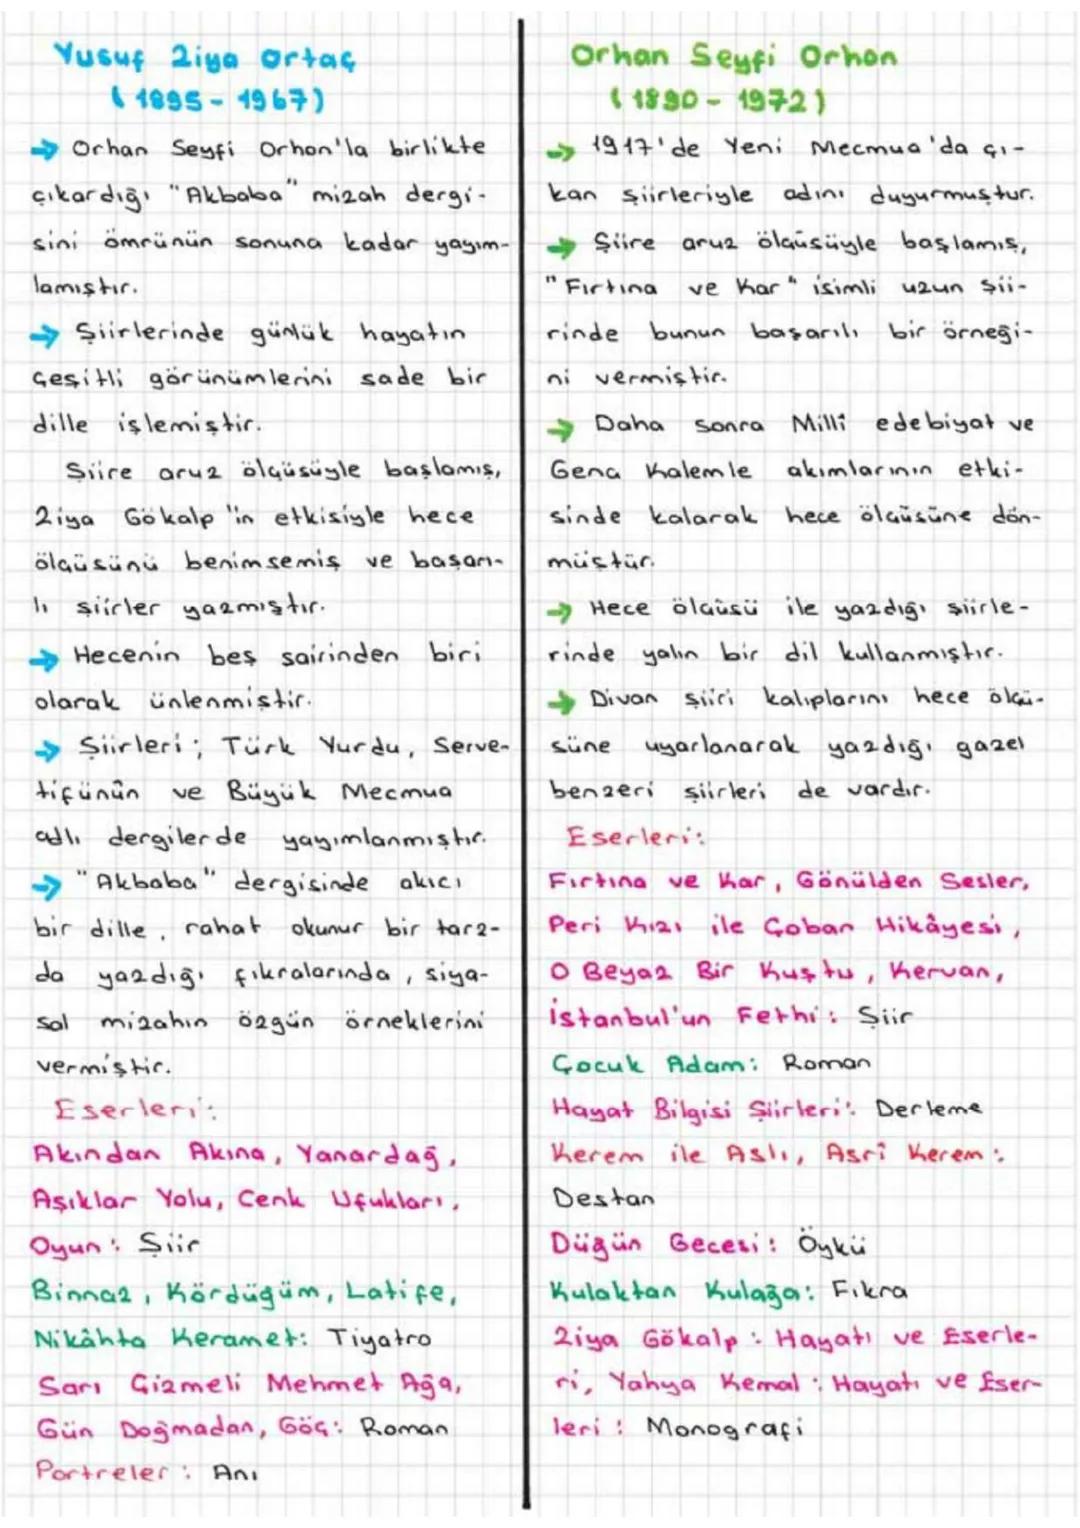 Yusuf Ziya Ortaç
(1895 - 1967)
→ Orhan Seyfi Orhon'la birlikte
çıkardığı "Akbaba" mizah dergi-
sini ömrünün sonuna kadar yayım-
lamıştır.
→ Şiirlerinde günlük hayatın
çeşitli görünümlerini sade bir
dille işlemiştir.
Şiire aruz ölçüsüyle başlamış,
Ziya Gökalp'in etkisiyle hece
ölçüsünü benimsemiş ve başarı-
lı şiirler yazmıştır.
→ Hecenin beş şairinden biri
olarak ünlenmiştir.
→ Şiirleri; Türk Yurdu, Serve-
tifünûn ve Büyük Mecmua
adlı dergilerde yayımlanmıştır.
→ "Akbaba" dergisinde akıcı
bir dille, rahat okunur bir tarz-
da yazdığı fıkralarında, siya-
sal mizahın özgün örneklerini
vermiştir.
Eserleri:
Akından Akına, Yanardağ,
Aşıklar Yolu, Cenk Ufukları,
Oyun: Şiir
Binnaz, Kördüğüm, Latife,
Nikâhta Keramet: Tiyatro
Sarı Çizmeli Mehmet Ağa,
Gün Doğmadan, Göç: Roman
Portreler: Anı
Orhan Seyfi Orhon
(1890 - 1972)
→ 1917'de Yeni Mecmua'da çı-
kan şiirleriyle adını duyurmuştur.
→ Şiire aruz ölçüsüyle başlamış,
"Fırtına ve Kar" isimli uzun şii-
rinde bunun başarılı bir örneği-
ni vermiştir.
→ Daha sonra Millî edebiyat ve
Genç Kalemle akımlarının etki-
sinde kalarak hece ölçüsüne dön-
müştür.
→ Hece ölçüsü ile yazdığı şiirle-
rinde yalın bir dil kullanmıştır.
→ Divan şiiri kalıplarını hece ölçü-
süne uyarlanarak yazdığı gazel
benzeri şiirleri de vardır.
Eserleri:
Fırtına ve Kar, Gönülden Sesler,
Peri Kızı ile Çoban Hikâyesi,
O Beyaz Bir Kuştu, Kervan,
İstanbul'un Fethi: Şiir
Çocuk Adam: Roman
Hayat Bilgisi Şiirleri: Derleme
Kerem ile Aslı, Asrî Kerem:
Destan
Düğün Gecesi: Öykü
Kulaktan Kulağa: Fıkra
Ziya Gökalp: Hayatı ve Eserle-
ri, Yahya Kemal: Hayatı ve Eser-
leri: Monografi